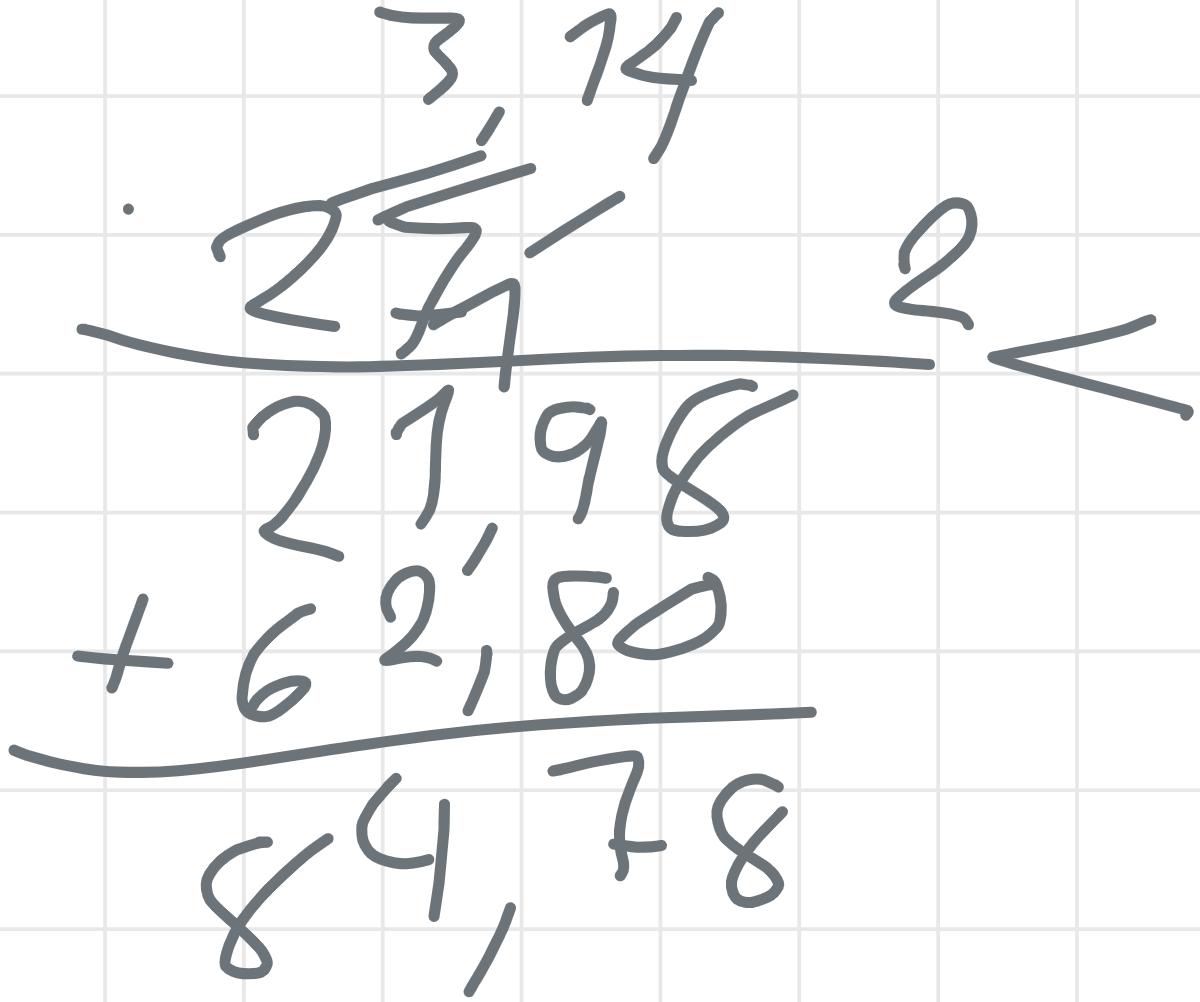 3,14
· 27
21,98 2 <
+ 62,80
84,78